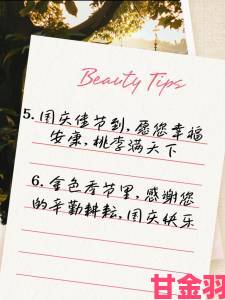 Beauty Tips
5.国庆佳节到,愿您幸福
安康,桃李满天下
6.金色秀节里,感谢您
的辛勤耕耘,国庆快乐
甘金羽